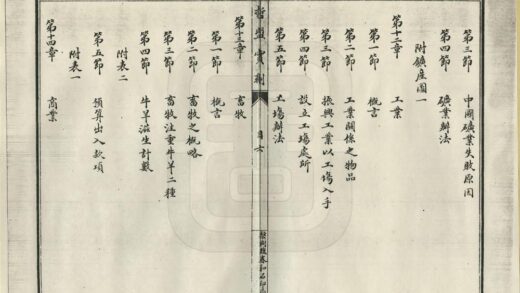 第三節 中國礦業失敗原因
第四節 礦業辦法
附鑛產圖一
第十二章 工業
第一節 概言
第二節 工業關係之物品
第三節 振興工業以工場入手
第四節 設立工場處所
第五節 工場辦法
哲盟實劑 目六
第十三章 畜牧
第一節 概言
第二節 畜牧之概略
第三節 畜牧注重牛羊二種
第四節 牛羊滋生計數
附表二
第五節 預算出入款項
附表一
第十四章 商業